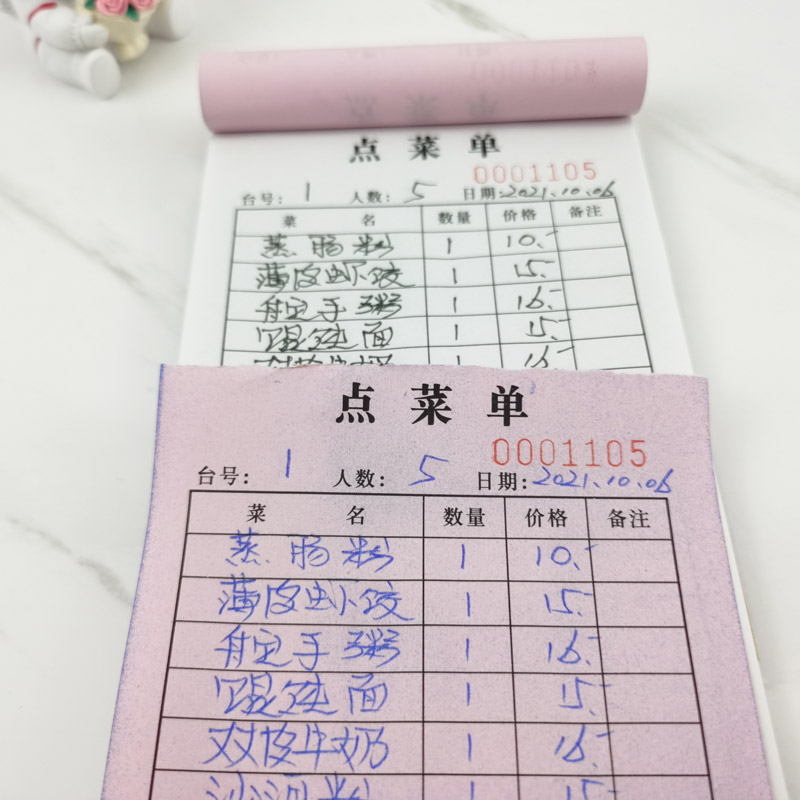 点菜单
0001105
台号: 1 人数: 5 日期: 2021.10.06
菜 名 数量 价格 备注
蒸肠粉 1 10.-
薄皮虾饺 1 15.-
舢艇手粥 1 16.-
馄饨面 1 15.-
双皮牛奶 1 16.-
点菜单
0001105
台号: 1 人数: 5 日期: 2021.10.06
菜 名 数量 价格 备注
蒸肠粉 1 10.-
薄皮虾饺 1 15.-
手粥 1 16.-
馄饨面 1 15.-
双皮牛奶 1 16.-
沙河粉 1 15.-